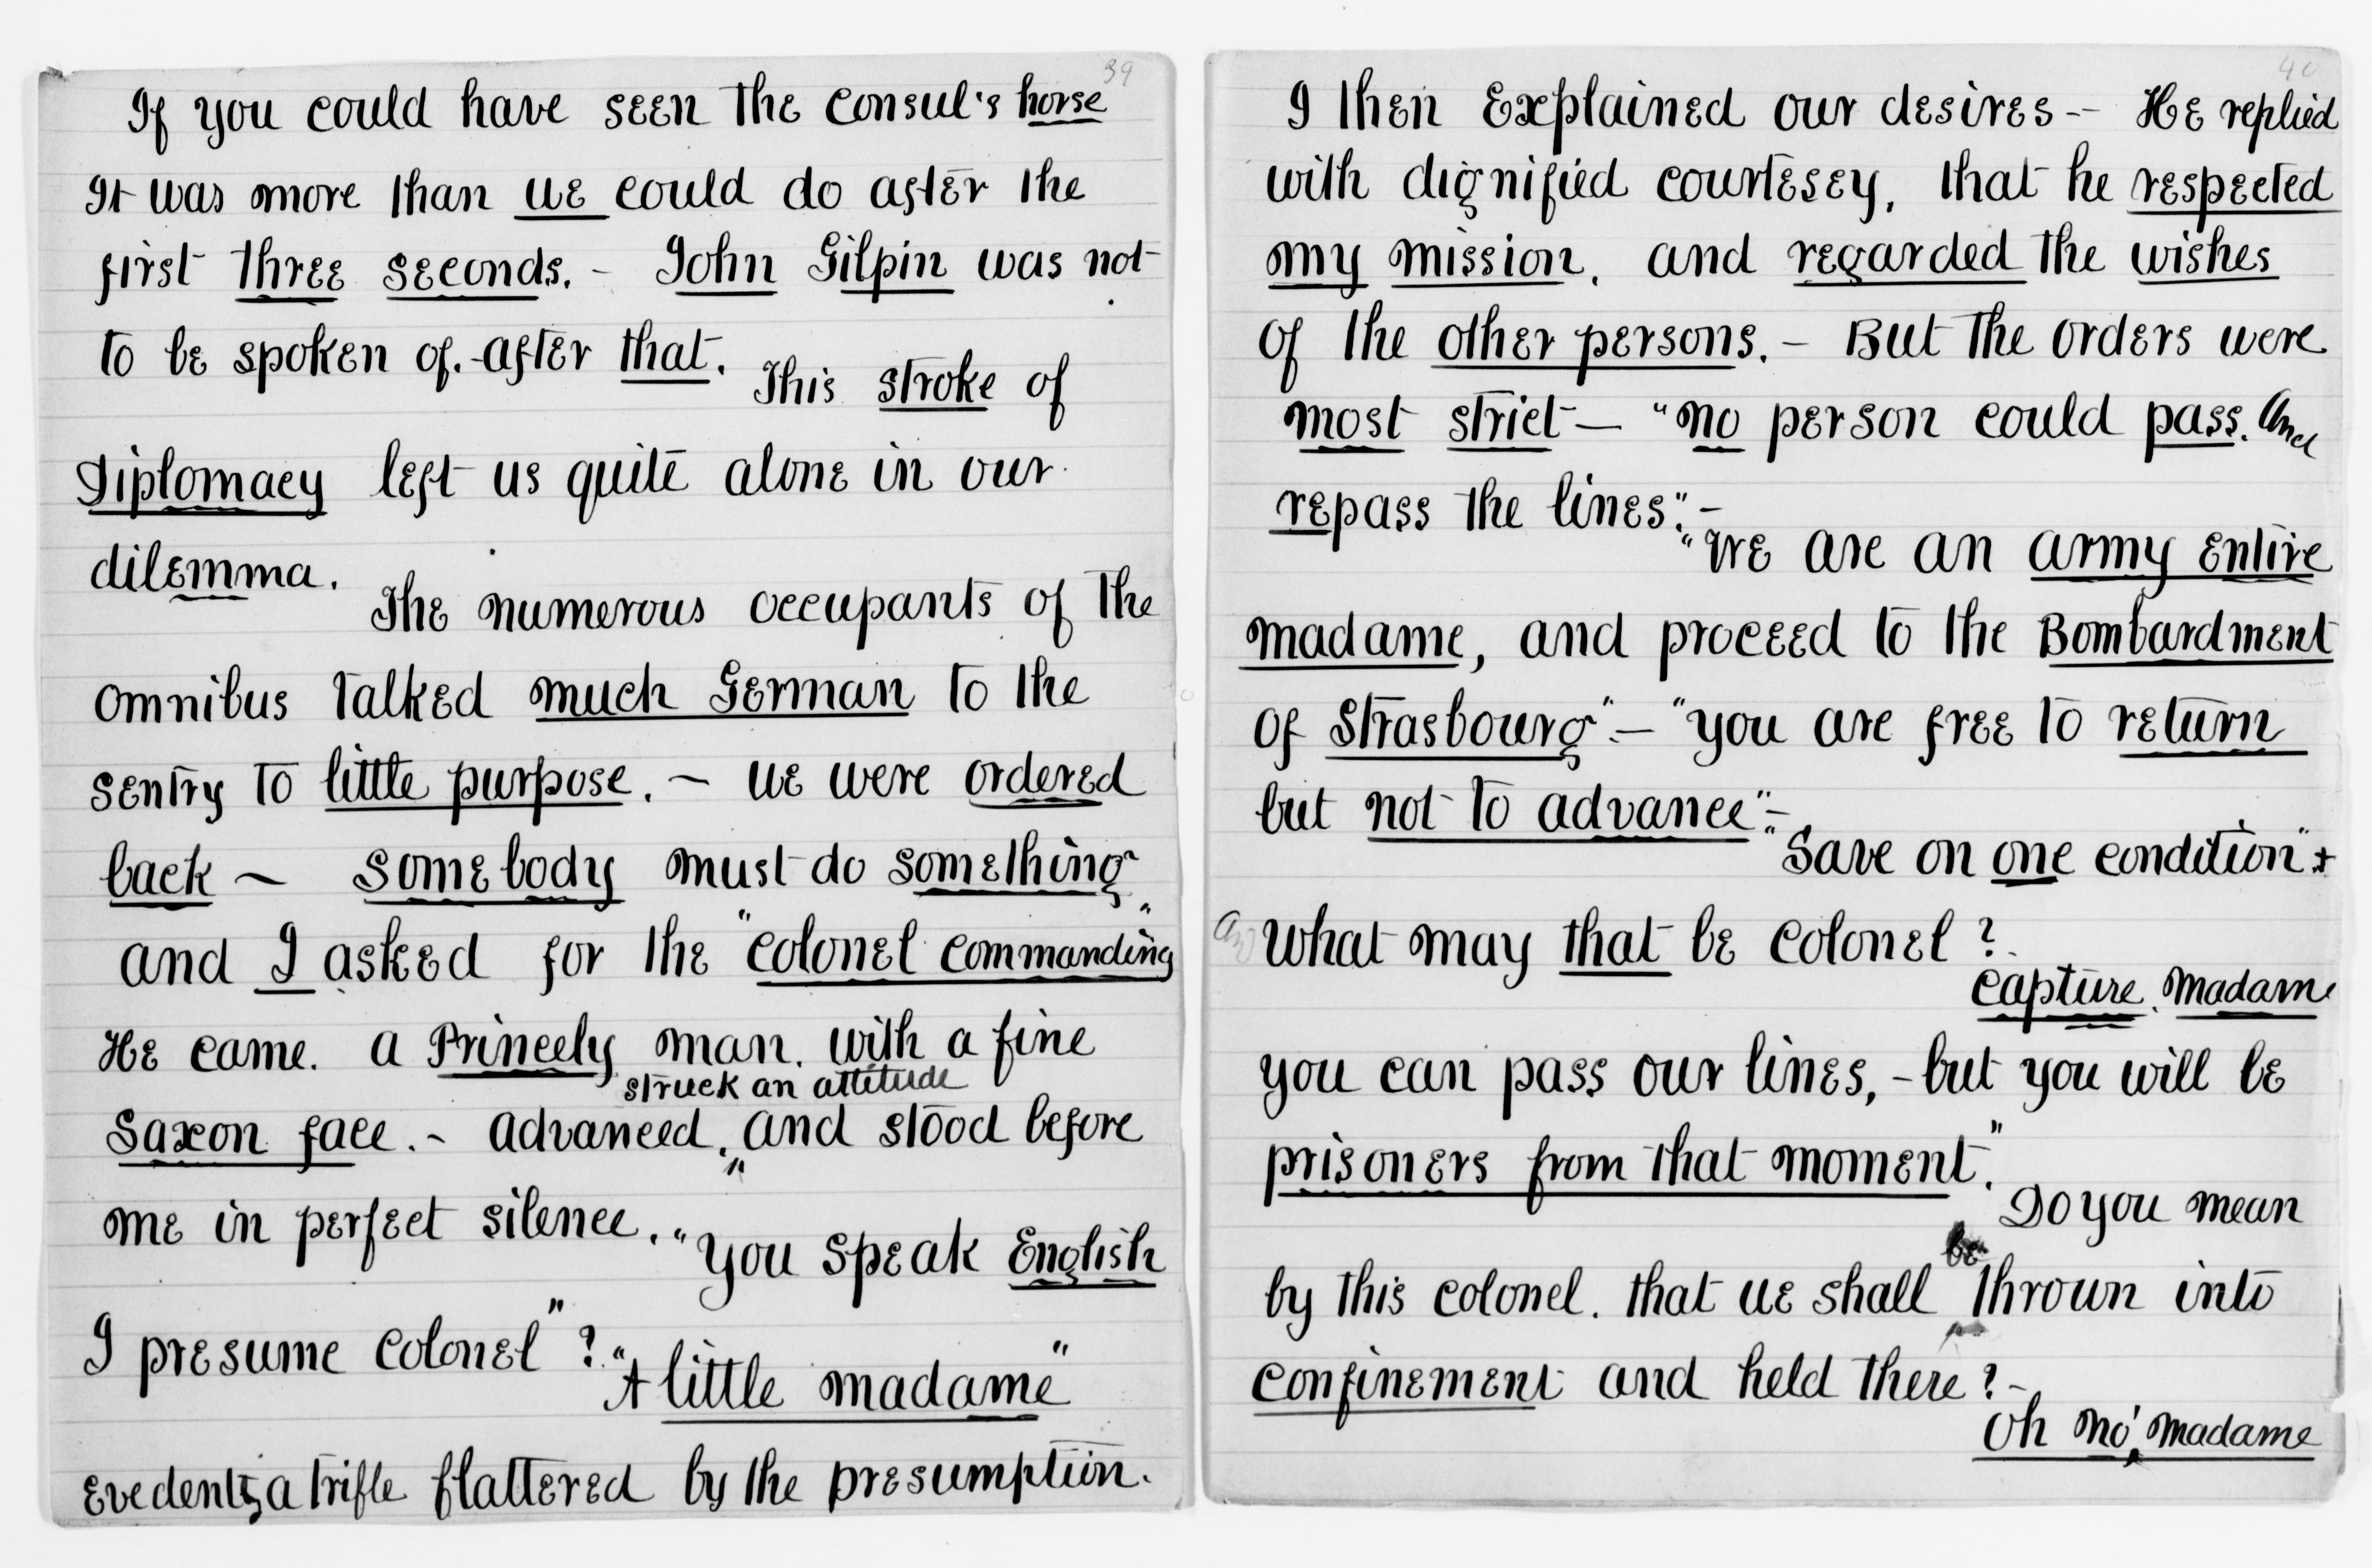 39
If you could have seen the consul's horse
It was more than we could do after the
first three seconds. - John Gilpin was not
to be spoken of. after that.
This stroke of
Diplomacy left us quite alone in our
dilemma.
The numerous occupants of the
omnibus talked much German to the
sentry to little purpose. - we were ordered
back - somebody must do something
and I asked for the "colonel commanding"
He came. a Princely man. with a fine
struck an attitude
Saxon face. - advanced, and stood before
me in perfect silence.
"You speak English
I presume colonel"?
"A little madame"
Evedently a trifle flattered by the presumption.
40
I then Explained our desires -- He replied
with dignified courtesey, that he respected
my mission, and regarded the wishes
of the other persons. - But the orders were
most strict - "no person could pass. and
repass the lines". -
"We are an army entire
madame, and proceed to the Bombardment
of Strasbourg". - "you are free to return
but not to advance". -
"Save on one condition".
What may that be colonel?
Capture. Madam
you can pass our lines, - but you will be
prisoners from that moment."
Do you mean
be
by this colonel. that we shall thrown into
confinement and held there? -
Oh no, madame